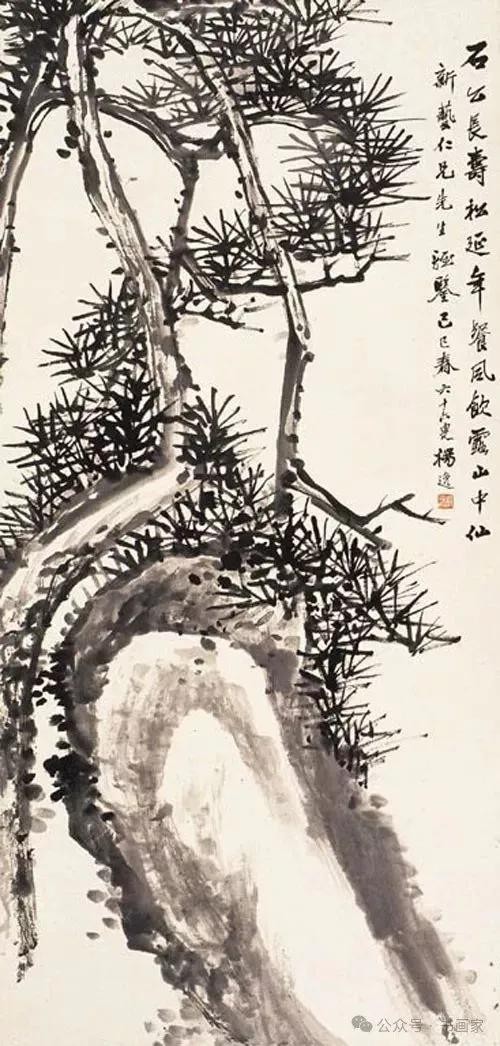 石公長壽松延年餐風飲露山中仙
新藝仁兄先生雅鑒己巳春六十六叟楊逸
公众号·书画家